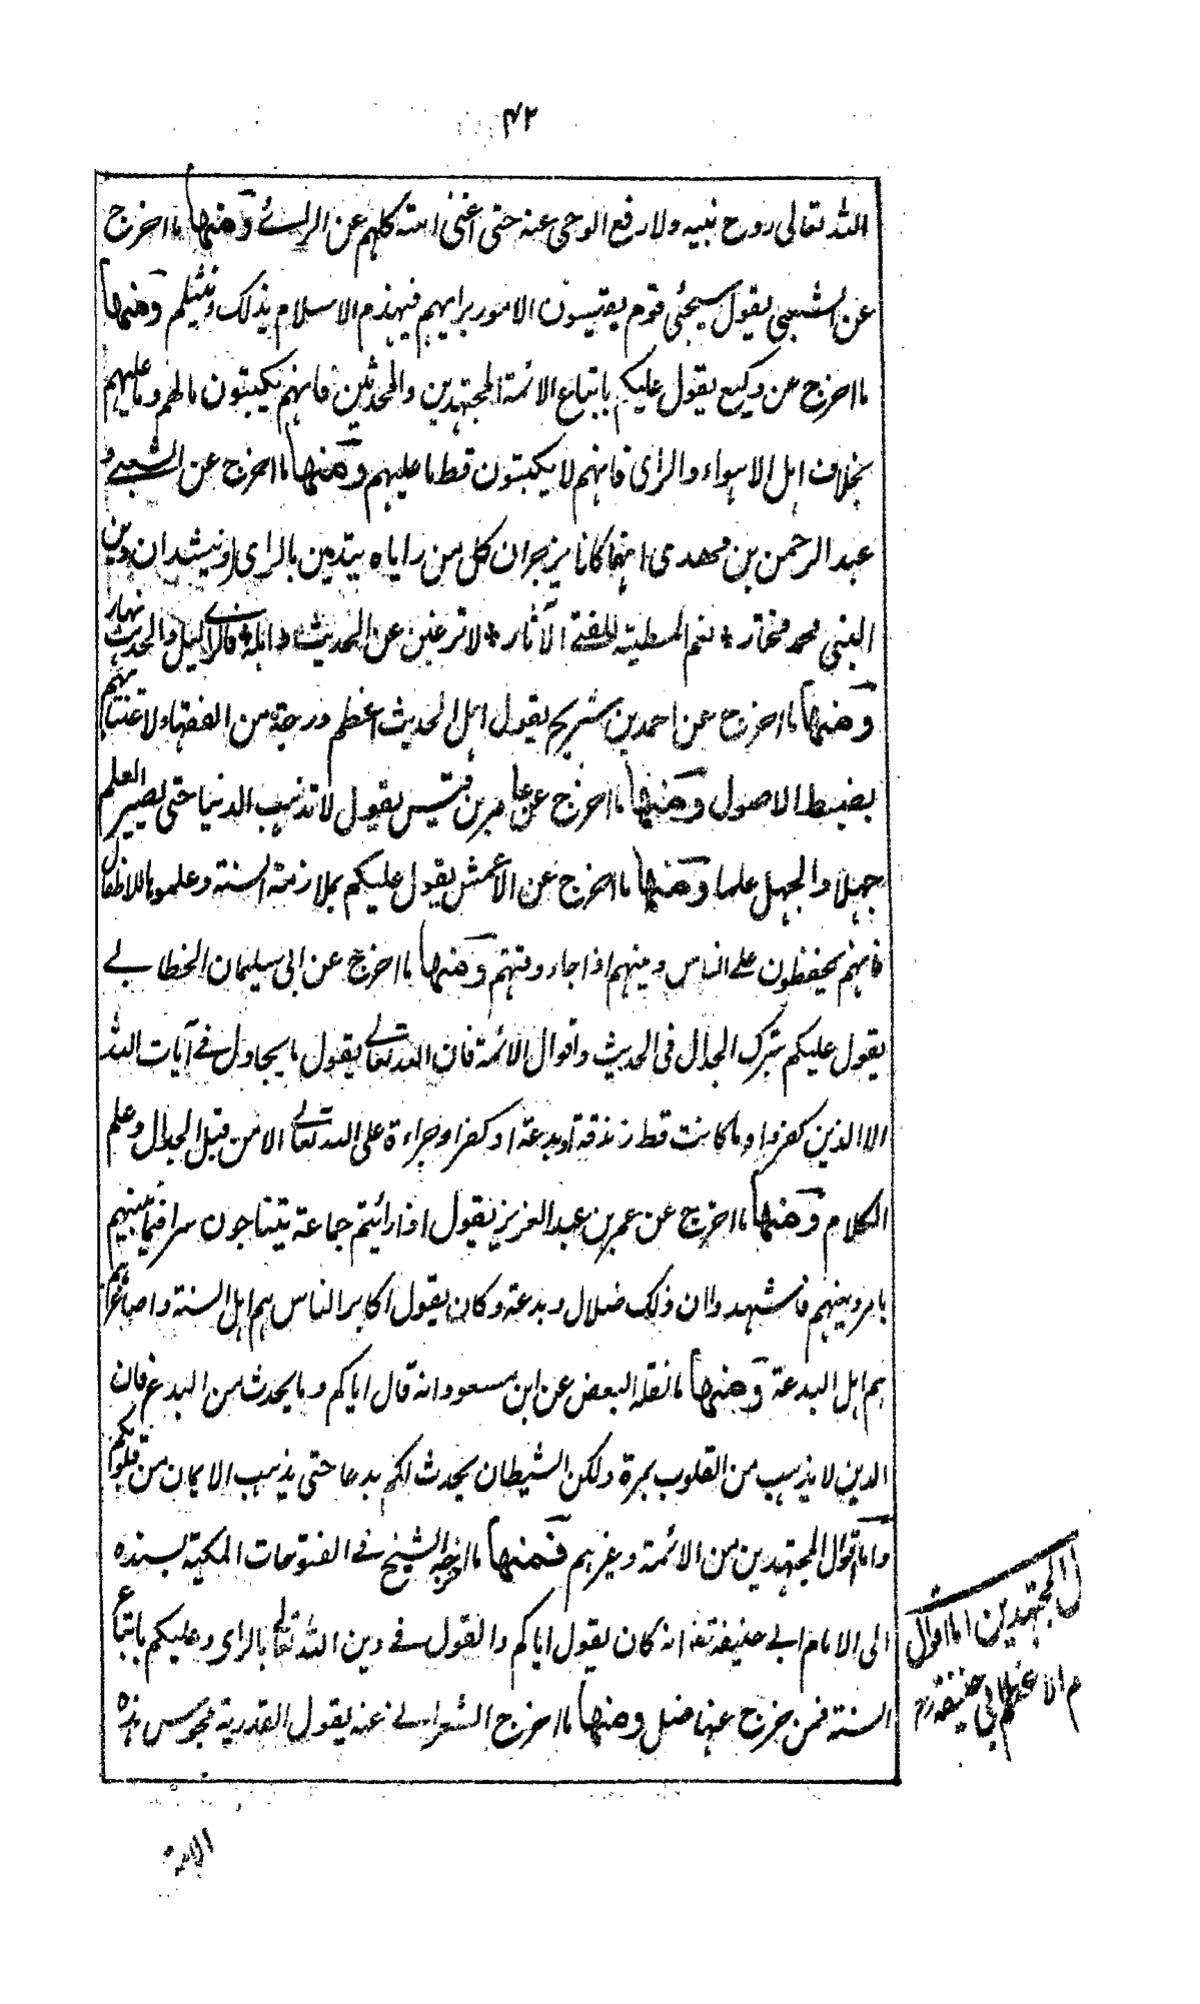 ٤٢
الله تعالى روح نبيه ولا رفع الوحى عنه حتى اغنى امته كلهم عن الراے ومنها ما اخرج
عن الشعبى يقول سيجئى قوم يقيسون الامور برايهم فيهدم الاسلام بذلك ويثلم ومنها
ما اخرج عن وكيع يقول عليكم باتباع الائمة المجتهدين والمحدثين فانهم يكتبون مالهم وما عليهم
بخلاف اهل الاهواء والراى فانهم لا يكتبون قط ما عليهم ومنها ما اخرج عن الشعبے و
عبد الرحمن بن مهدى انهما كانا يزجران كل من راياه يتدين بالراى وينشدان دين
النبى محمد مختار * نعم المطية للفتے الآثار * لا ترغبن عن الحديث واهله * فالراے ليل والحديث نهار
ومنها ما اخرج عن احمد بن شريح يقول اهل الحديث اعظم درجة من الفقهاء لاعتنائهم
بضبط الاصول ومنها ما اخرج عن عامر بن قيس يقول لا تذهب الدنيا حتى يصير العلم
جهلا والجهل علما ومنها ما اخرج عن الاعمش يقول عليكم بملازمة السنة وعلموها للاطفال
فانهم يحفظون علے الناس دينهم اذا جاء وقتهم ومنها ما اخرج عن ابى سليمان الخطابے
يقول عليكم بترك الجدال فى الحديث واقوال الائمة فان الله تعالے يقول ما يجادل فے آيات الله
الا الذين كفروا وما كانت قط زندقة او بدعة او كفر او جراءة على الله تعالے الا من قبل الجدال وعلم
الكلام ومنها ما اخرج عن عمر بن عبد العزيز يقول اذا رأيتم جماعة يتناجون سرا فيما بينهم
بامر دينهم فاشهدوا ان ذلك ضلال وبدعة وكان يقول اكابر الناس هم اهل السنة واصاغرهم
هم اهل البدعة ومنها ما نقله البعض عن ابن مسعود انه قال اياكم وما يحدث من البدع فان
الدين لا يذهب من القلوب بمرة ولكن الشيطان يحدث لكم بدعا حتى يذهب الايمان من قلوبكم
واما اقوال المجتهدين من الائمة وغيرهم فمنها ما اخرجه الشيخ فے الفتوحات المكية بسنده
الى الامام ابے حنيفة انه كان يقول اياكم والقول فے دين الله تعالى بالراى وعليكم باتباع
السنة فمن خرج عنها ضل ومنها ما اخرج الشعرانے عنه يقول القدرية مجوس هذه
ل المجتهدين اما اقوال
م الاعظم ابى حنيفة رح
الامة